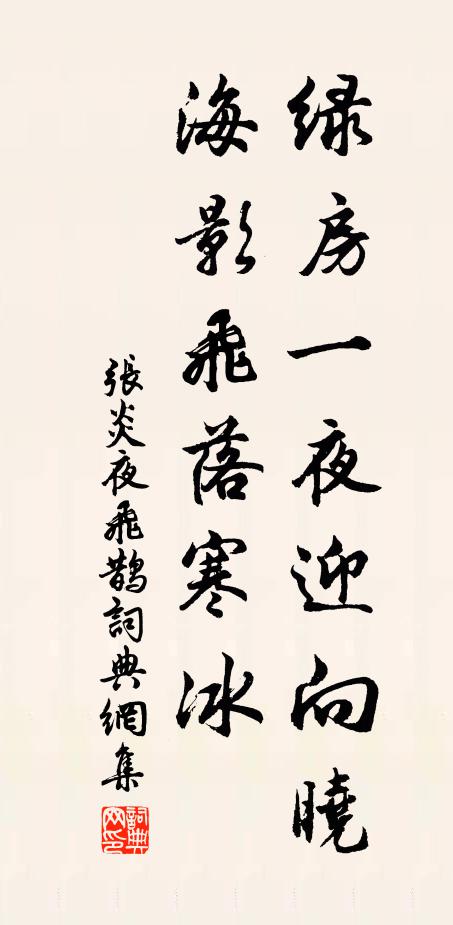 绿房一夜迎向曉
海影飛落寒冰
張炎夜飛鵲詞典網集
詞典網印